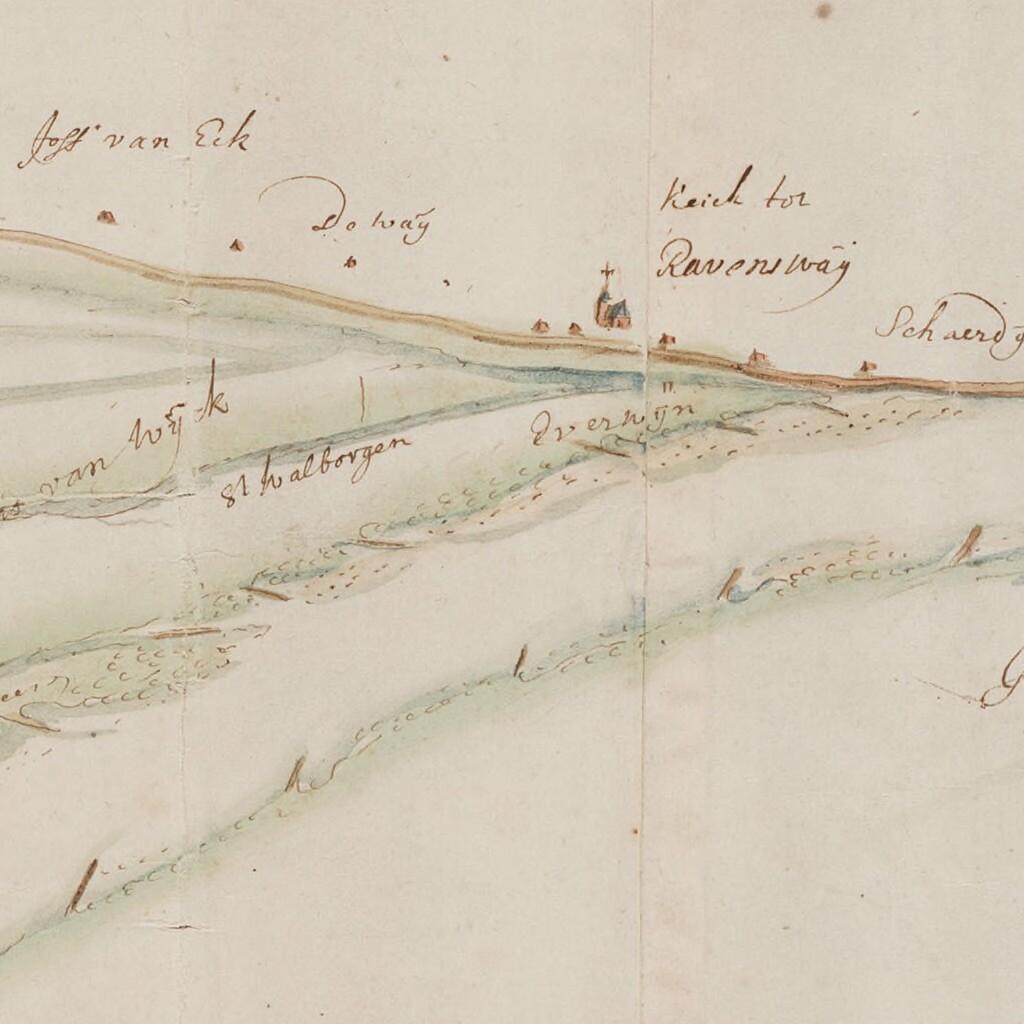 Joff van Eck
De waÿ
Keick tot
Ravenswaÿ
Schaerdÿ
van Wÿck
St Walborgen
Everwijn
G